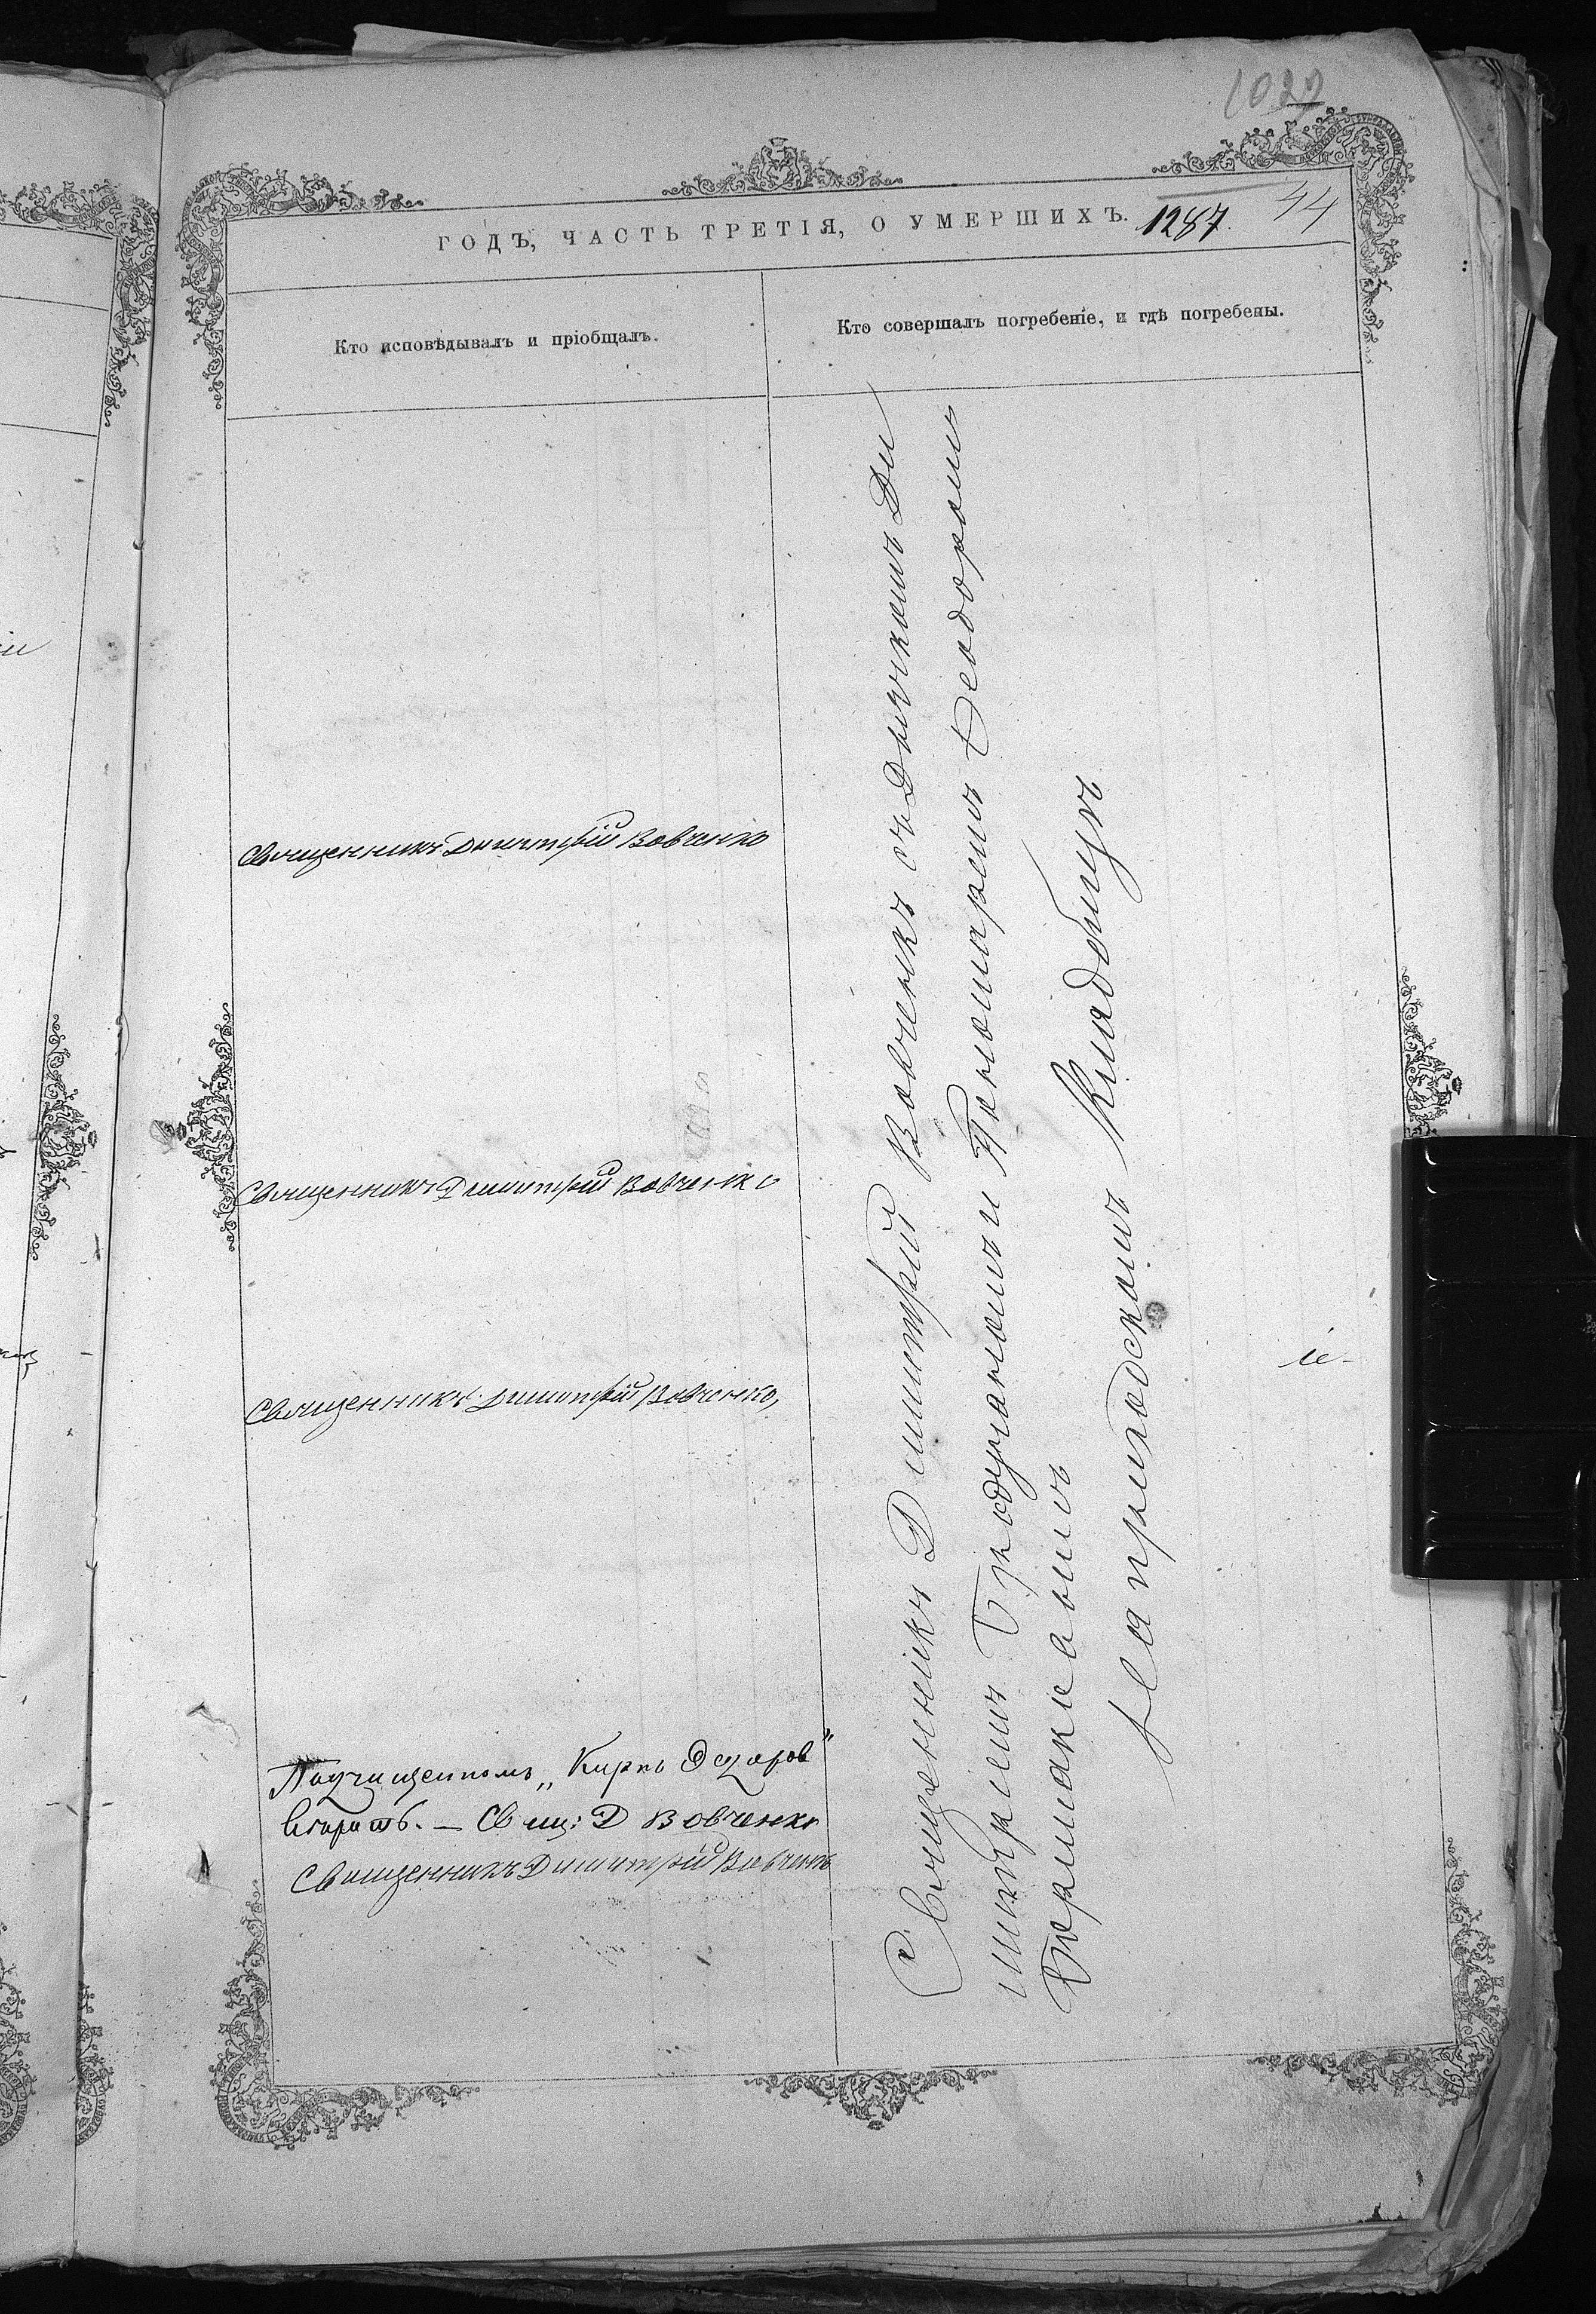 1027
ГОДЪ, ЧАСТЬ ТРЕТІЯ, О УМЕРШИХЪ. 1287. 44
Кто исповѣдывалъ и пріобщалъ.
Кто совершалъ погребеніе, и гдѣ погребены.
Священникъ Димитрій Вовченко
Священникъ Димитрій Вовченко
Священникъ Димитрій Вовченко,
Подчищенномъ „Кирпо
вѣрить. — Свящ: Д Вовченко
Священникъ Димитрій Вовченко
Священникъ Димитрій Вовченко съ Дьячкомъ Ди
митріемъ и Пономаремъ Ѳеодоромъ
Бермаковымъ
На приходскомъ Кладбищѣ